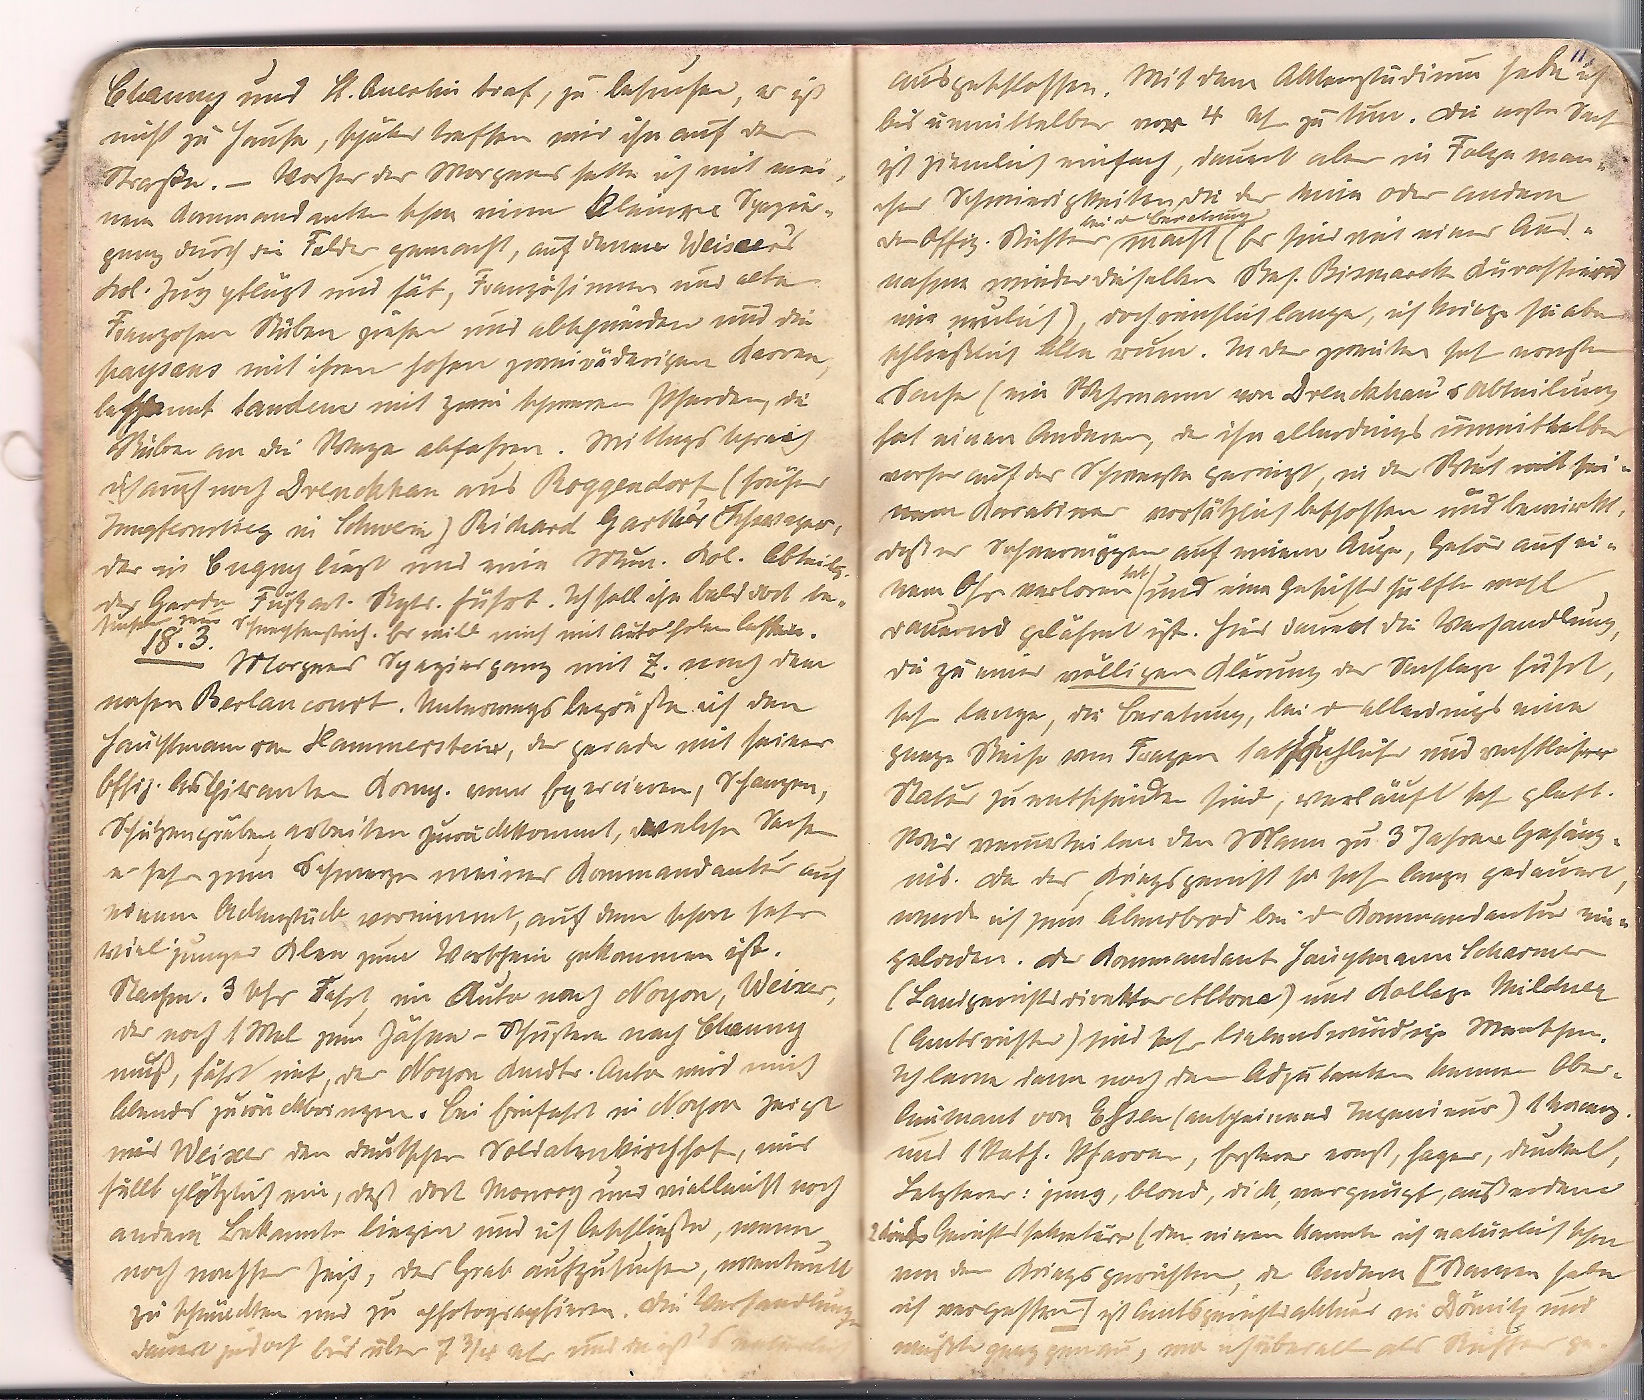 Chauny und St. Quentin traf, zu besuchen, er ist
nicht zu Hause, später treffen wir ihn auf der
Straße. – Vorher des Morgens hatte ich mit mei-
nem Kommandanten schon einen kleinen Spazier-
gang durch die Felder gemacht, auf denen Weixer's
Kol. Zug pflügt und sät, Französinnen und alte
Franzosen Rüben ziehen und abschneiden und die
paysans mit ihren hohen zweirädrigen Karren,
bespannt tandem mit zwei schweren Pferden, die
Rüben an die Wege abfahren. Mittags sprach
ich auch noch Drenckhan aus Roggendorf (früher
in Schwerin) Richard Schwager,
der in Cugny liegt und eine Mun. Kol. Abteilg.
der Garde Fußart. Rgts. führt. Ich soll ihn bald dort be-
suchen zum Er will mich mit Auto holen lassen.
18.3.
Morgens Spaziergang mit Z. nach dem
nahen Berlancourt. Unterwegs begrüßte ich den
Hauptmann von Hammerstein, der gerade mit seiner
Offiz. Aspiranten Komp. vom Exercieren, Schanzen,
Schützengräben arbeiten zurückkommt, welche Sache
er sehr zum Schmerze meiner Kommandantur auf
einem Ackerstück vornimmt, auf dem schon sehr
viel junger Klee zum Vorschein gekommen ist.
Nachm. 3 Uhr Fahrt im Auto nach Noyon, Weixer,
der noch 1 Mal zum Zähne-Schustern nach Chauny
muß, fährt mit, das Noyon Kmdtr. Auto wird mich
Abends zurückbringen. Bei Einfahrt in Noyon zeigt
mir Weixer den deutschen Soldatenkirchhof, mir
fällt plötzlich ein, daß dort Monroy und vielleicht noch
andere Bekannte liegen und ich beschließe, wenn
noch nachher Zeit, das Grab aufzusuchen, eventuell
zu schmücken und zu photographieren. Die Verhandlung
dauert jedoch bis über 7 3/4 Uhr und da ist's natürlich
ausgeschlossen. Mit dem Aktenstudium habe ich
bis unmittelbar vor 4 Uhr zu tun. Die erste Sache
ist ziemlich einfach, dauert aber in Folge man-
cher Schwierigkeiten, die der eine oder andere
der Offiz. Richter bei d. Beratung macht (Es sind mit einer Aus-
nahme wieder dieselben Bismarck
wie neulich), doch reichlich lange, ich kriege sie aber
schließlich Alle rum. In der zweiten sehr ernsten
Sache (ein Wehrmann von Drenckhan's Abteilung
hat einen Anderen, der ihn allerdings unmittelbar
vorher auf das Schwerste gereizt, in der Wut mit sei-
nem Karabiner vorsätzlich beschossen und bewirkt,
daß er Sehvermögen auf einem Auge, Gehör auf ei-
nem Ohr verloren hat) und eine Gesichtshälfte wohl
dauernd gelähmt ist. Hier dauert die Verhandlung,
die zu einer völligen Klärung der Sachlage führt,
sehr lange, die Beratung, bei d. allerdings eine
ganze Reihe von Fragen tatsächlicher und rechtlicher
Natur zu entscheiden sind, verläuft sehr glatt.
Wir verurteilen den Mann zu 3 Jahren Gefäng-
nis. Da das Kriegsgericht so sehr lange gedauert,
werde ich zum Abendbrod bei d. Kommandantur ein-
geladen. Der Kommandant Hauptmann Scharmer
(Landgerichtsdirektor Altona) und Kollege Mildner
(Amtsrichter) sind sehr liebenswürdige Menschen.
Ich lerne dann noch den Adjutanten kennen Ober-
leutnant von (anscheinend Ingenieur) 1 evang.
und 1 kath. Pfarrer, Ersterer ernst, hager, dunkel,
Letzterer: jung, blond, dick, vergnügt, außerdem
2 Gerichtssekretäre (den einen kannte ich natürlich schon
von den Kriegsgerichten, der Andere [Namen habe
ich vergessen] ist Amtsgerichtsaktuar in Dömitz und
wußte ganz genau, wo ich überall als Richter ge-